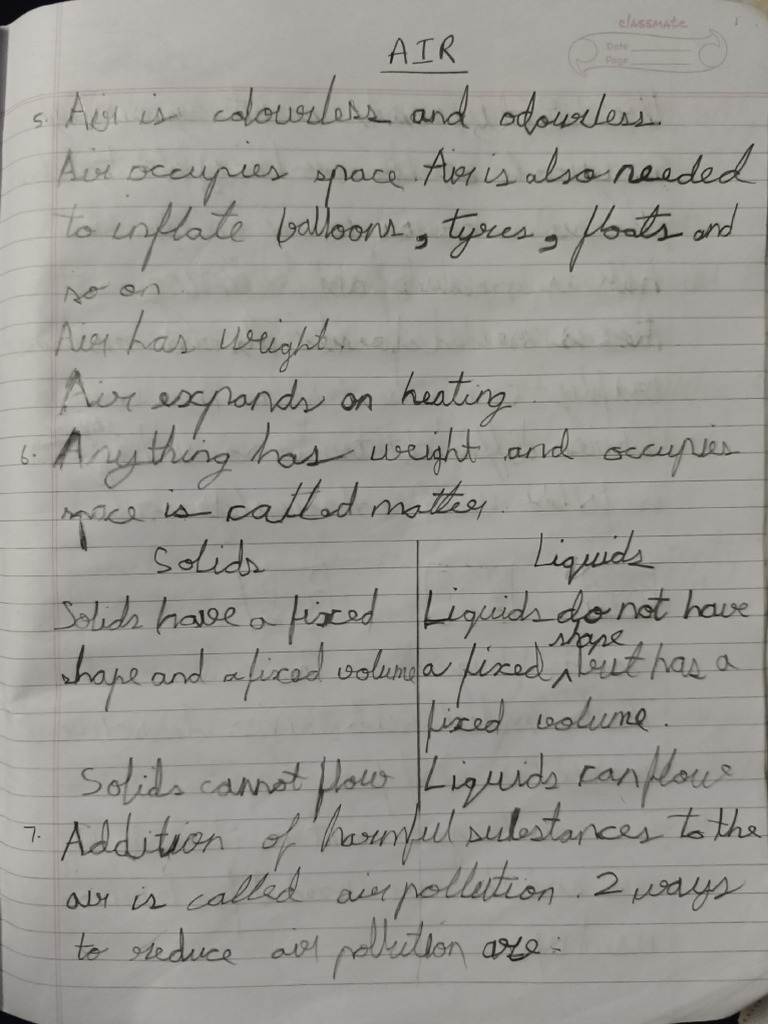 classmate
Date
Page
AIR
5. Air is colourless and odourless.
Air occupies space. Air is also needed
to inflate balloons, tyres, floats and
so on
Air has weight.
Air expands on heating
6. Anything has weight and occupies
space is called matter.
Solids | Liquids
Solids have a fixed | Liquids do not have
shape and a fixed volume | a fixed shape, but has a
fixed volume.
Solids cannot flow | Liquids can flow
7. Addition of harmful substances to the
air is called air pollution. 2 ways
to reduce air pollution are: